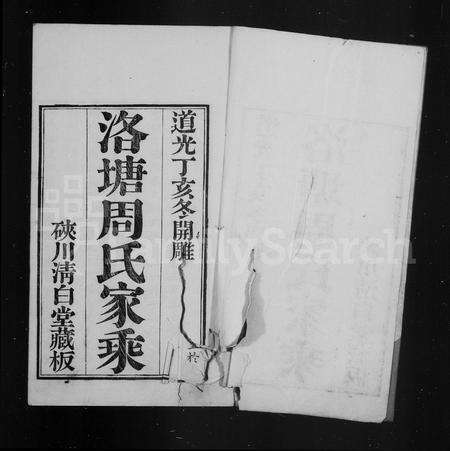 道光丁亥冬開雕
洛塘周氏家乘
硤川清白堂藏板
FamilySearch